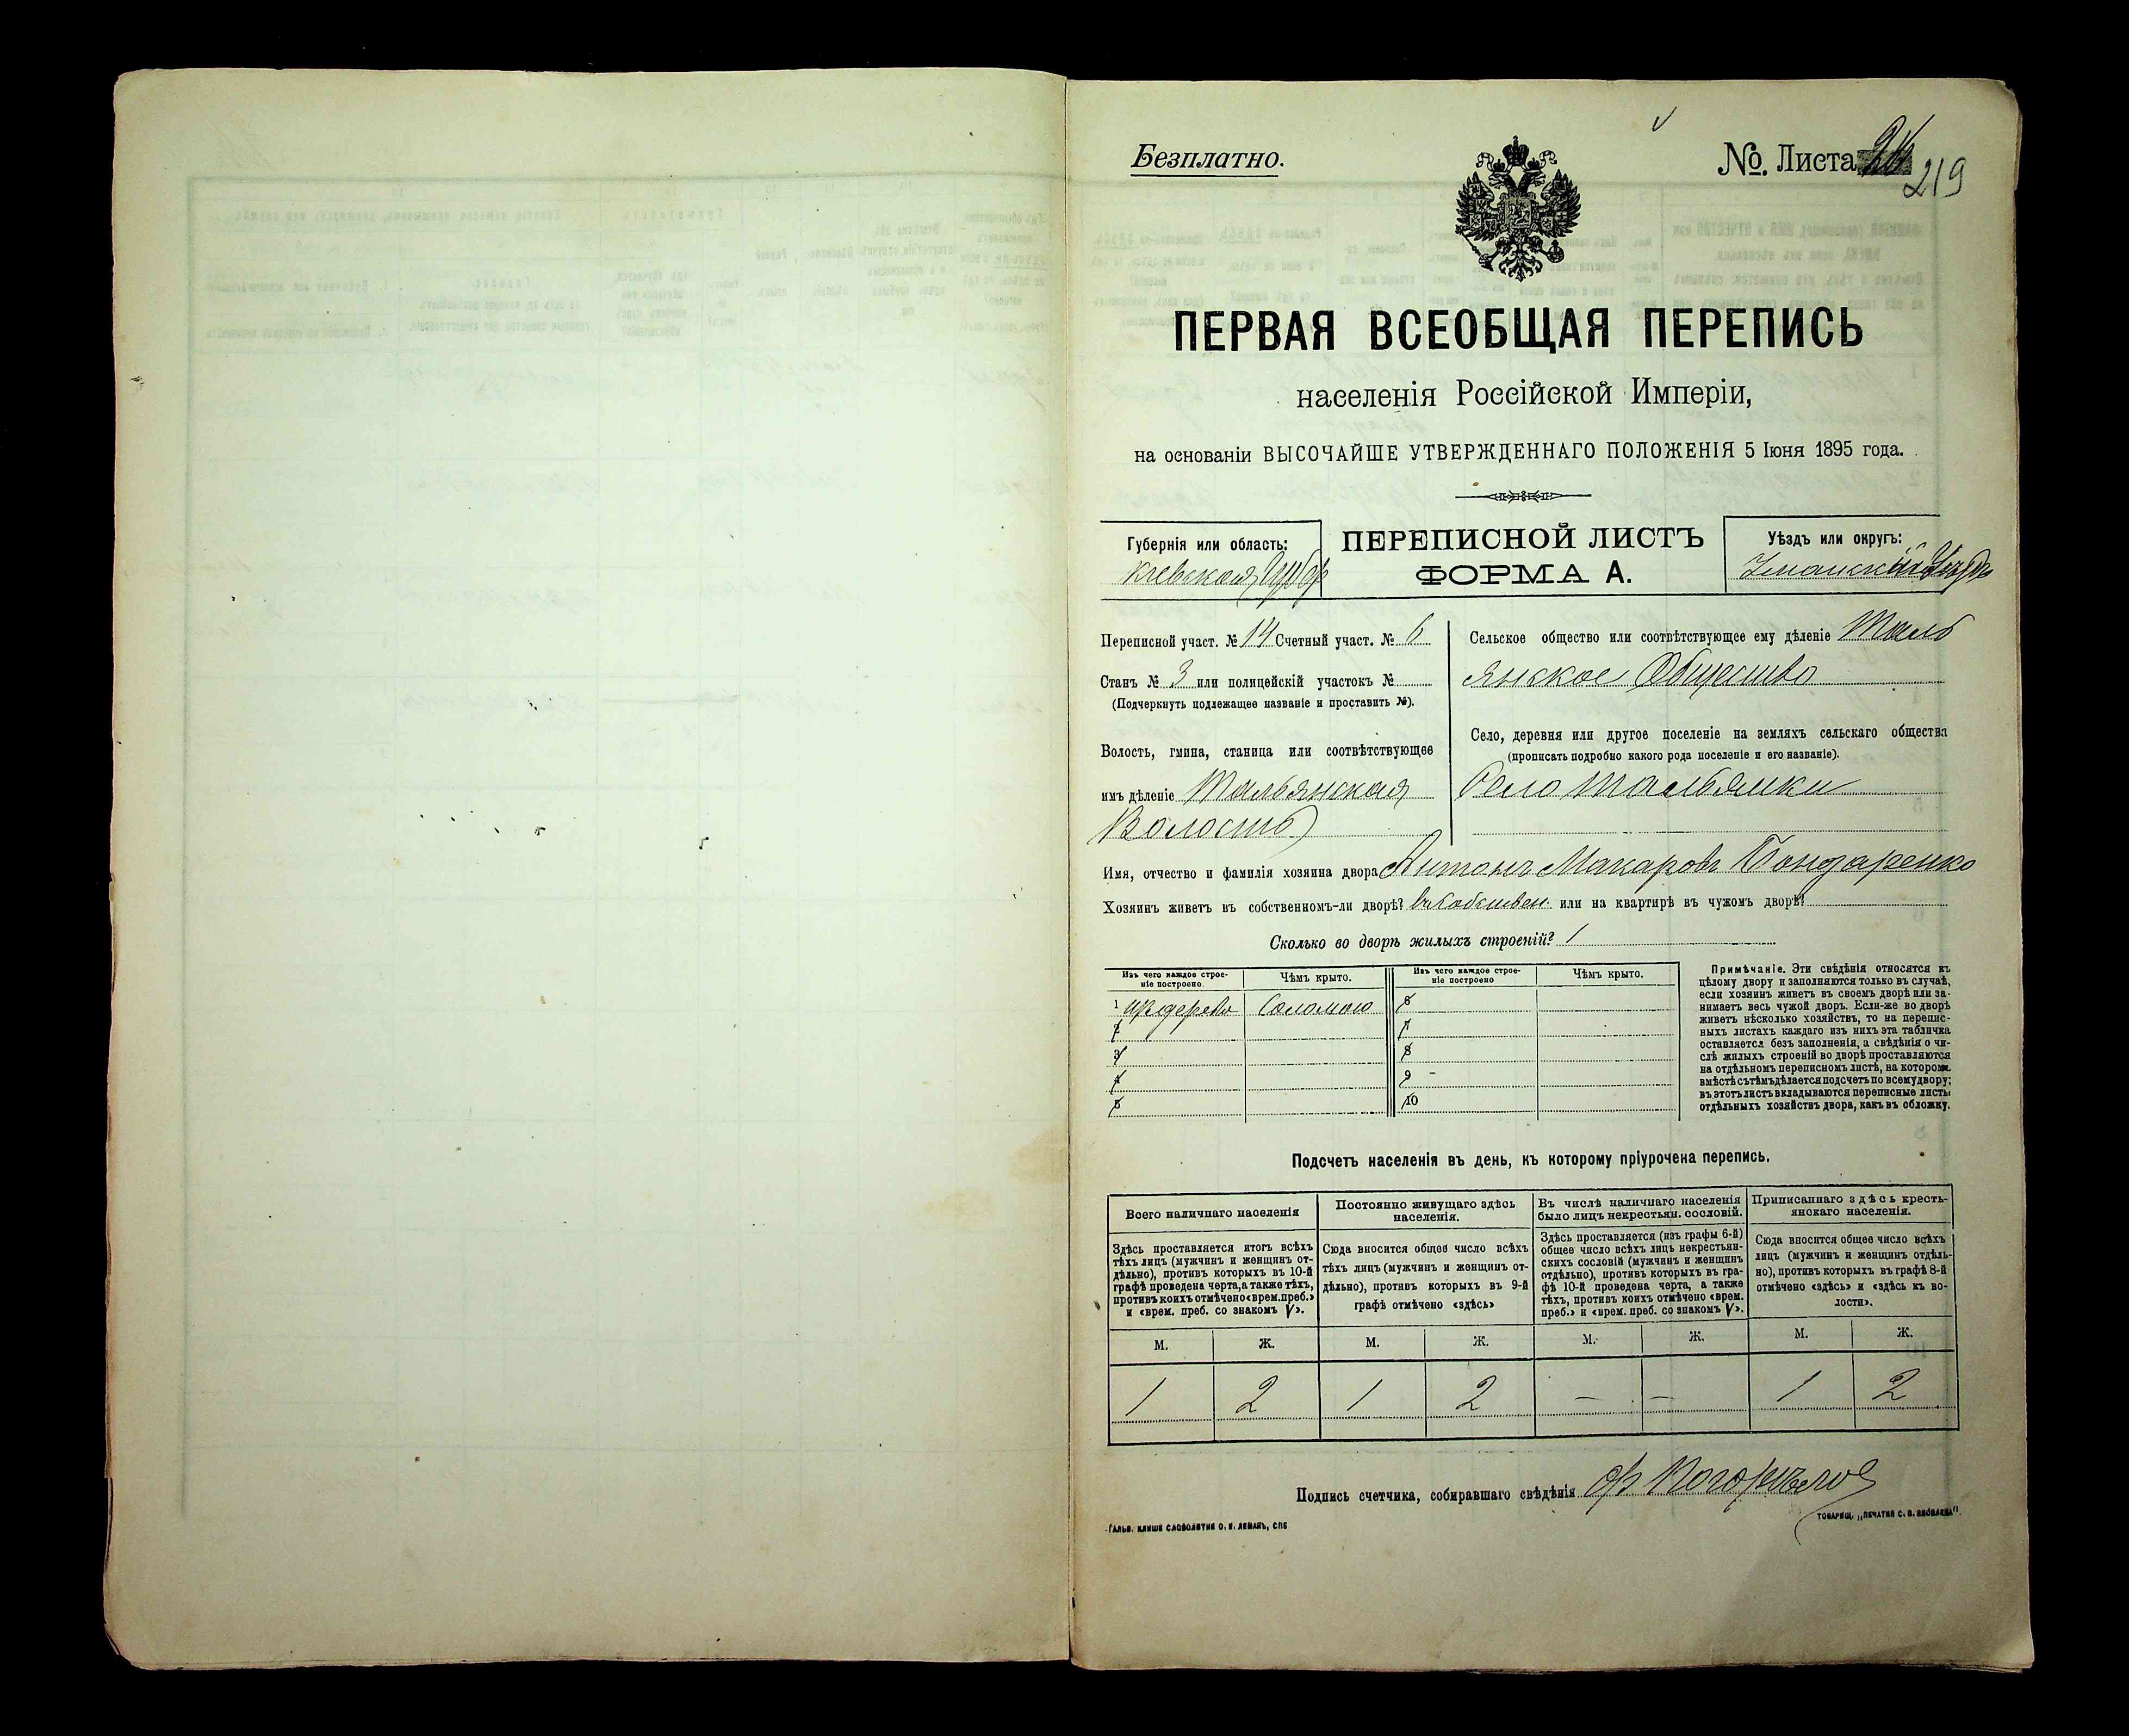 Безплатно.
№. Листа
219
ПЕРВАЯ ВСЕОБЩАЯ ПЕРЕПИСЬ
населенія Россійской Имперіи,
на основаніи ВЫСОЧАЙШЕ УТВЕРЖДЕННАГО ПОЛОЖЕНІЯ 5 Іюня 1895 года.
Губернія или область:
Кіевская Губер
ПЕРЕПИСНОЙ ЛИСТЪ
ФОРМА А.
Уѣздъ или округъ:
Уманскій Уѣздъ
Переписной участ. № 14 Счетный участ. № 6
Станъ № 3 или полицейскій участокъ №
(Подчеркнуть подлежащее названіе и проставить №).
Волость, гмина, станица или соотвѣтствующее
имъ дѣленіе Тальянская
Волость
Сельское общество или соотвѣтствующее ему дѣленіе Таль
янское Общество
Село, деревня или другое поселеніе на земляхъ сельскаго общества
(прописать подробно какого рода поселеніе и его названіе).
Село Тальянки
Имя, отчество и фамилія хозяина двора Антонъ Макаровъ Бондаренко
Хозяинъ живетъ въ собственномъ-ли дворѣ? въ Собствен или на квартирѣ въ чужомъ дворѣ?
Сколько во дворѣ жилыхъ строеній? 1
Изъ чего каждое строе-
ніе построено.
Чѣмъ крыто.
Изъ чего каждое строе-
ніе построено
Чѣмъ крыто.
1 Изъ дерева Соломою 6
2 7
3 8
4 9
5 10
Примѣчаніе. Эти свѣдѣнія относятся къ
цѣлому двору и заполняются только въ случаѣ,
если хозяинъ живетъ въ своемъ дворѣ или за-
нимаетъ весь чужой дворъ. Если-же во дворѣ
живетъ нѣсколько хозяйствъ, то на перепис-
ныхъ листахъ каждаго изъ нихъ эта табличка
оставляется безъ заполненія, а свѣдѣнія о чи-
слѣ жилыхъ строеній во дворѣ проставляются
на отдѣльномъ переписномъ листѣ, на которомъ
вмѣстѣ съ тѣмъ дѣлается подсчетъ по всему двору;
въ этотъ листъ вкладываются переписные листы
отдѣльныхъ хозяйствъ двора, какъ въ обложку.
Подсчетъ населенія въ день, къ которому пріурочена перепись.
Всего наличнаго населенія
Постоянно живущаго здѣсь
населенія.
Въ числѣ наличнаго населенія
было лицъ некрестьян. сословій.
Приписаннаго здѣсь кресть-
янскаго населенія.
Здѣсь проставляется итогъ всѣхъ
тѣхъ лицъ (мужчинъ и женщинъ от-
дѣльно), противъ которыхъ въ 10-й
графѣ проведена черта, а также тѣхъ,
противъ коихъ отмѣчено «врем. преб.»
и «врем. преб. со знакомъ V».
Сюда вносится общее число всѣхъ
тѣхъ лицъ (мужчинъ и женщинъ от-
дѣльно), противъ которыхъ въ 9-й
графѣ отмѣчено «здѣсь»
Здѣсь проставляется (изъ графы 6-й)
общее число всѣхъ лицъ некрестьян-
скихъ сословій (мужчинъ и женщинъ
отдѣльно), противъ которыхъ въ гра-
фѣ 10-й проведена черта, а также
тѣхъ, противъ коихъ отмѣчено «врем.
преб.» и «врем. преб. со знакомъ V».
Сюда вносится общее число всѣхъ
лицъ (мужчинъ и женщинъ отдѣль-
но), противъ которыхъ въ графѣ 8-й
отмѣчено «здѣсь» и «здѣсь къ во-
лости».
М. Ж. М. Ж. М. Ж. М. Ж.
1 2 1 2 — — 1 2
Подпись счетчика, собиравшаго свѣдѣнія
ГАЛЬВ. КЛИШЕ СЛОВОЛИТНИ О. И. ЛЕМАНЪ, СПБ
ТОВАРИЩ. „ПЕЧАТНЯ С. П. ЯКОВЛЕВА".